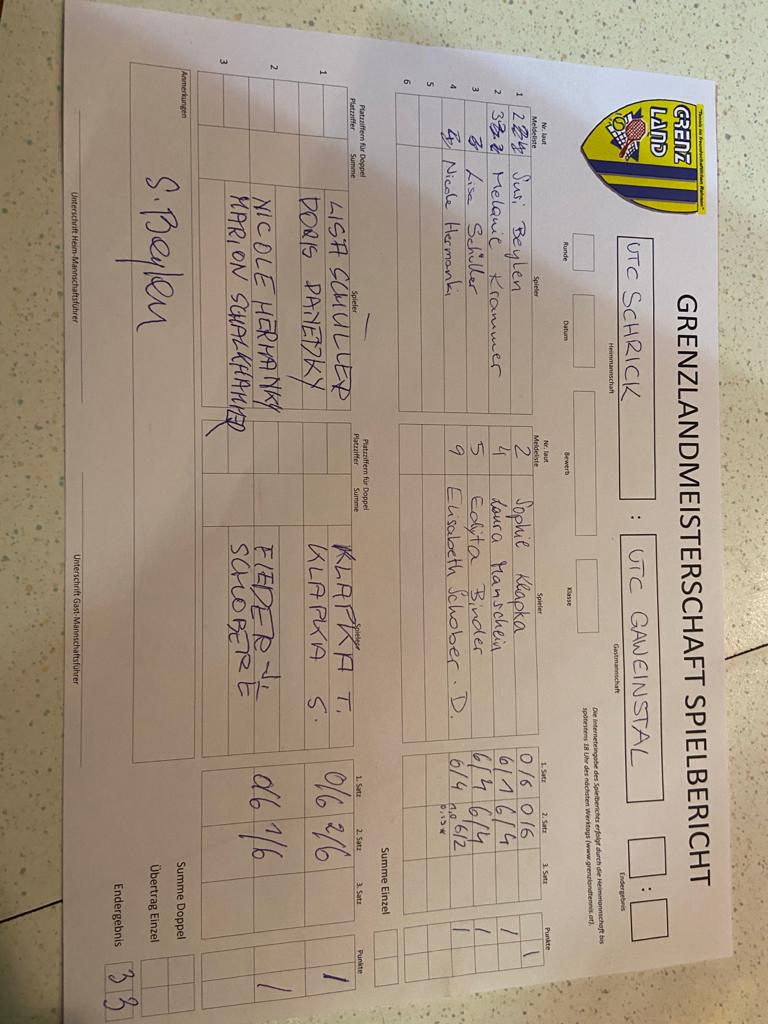 "Tennis im freundschaftlichen Rahmen"
GRENZ
LAND
GRENZLANDMEISTERSCHAFT SPIELBERICHT
UTC SCHRICK : UTC GAWEINSTAL :
Heimmannschaft Gastmannschaft Endergebnis
Die Interneteingabe des Spielberichts erfolgt durch die Heimmannschaft bis
spätestens 18 Uhr des nächsten Werktags (www.grenzlandtennis.at).
Runde Datum Bewerb Klasse
Nr. laut Meldeliste Spieler Nr. laut Meldeliste Spieler 1. Satz 2. Satz 3. Satz Punkte
1 2 Susi Beylen 2 Sophie Klapka 0/6 0/6 1
2 3 Melanie Krammer 4 Laura Manschein 6/1 6/4 1
3 Lisa Schüller 5 Edyta Binder 6/4 6/4 1
4 Nicole Hermanki 9 Elisabeth Schober. D. 6/4 6/2 1
5
6
Summe Einzel
Platzziffern für Doppel
Platzziffer Summe Spieler
Platzziffern für Doppel
Platzziffer Summe Spieler 1. Satz 2. Satz 3. Satz Punkte
1 LISA SCHÜLLER KLAPKA T. 0/6 2/6 1
DORIS PANETZKY KLAPKA S.
2 NICOLE HERMANKY 0/6 1/6 1
MARION SCHALKHAMMER
3
Summe Doppel
Anmerkungen
Übertrag Einzel
S. Beylen
Endergebnis 3 3
Unterschrift Heim-Mannschaftsführer Unterschrift Gast-Mannschaftsführer